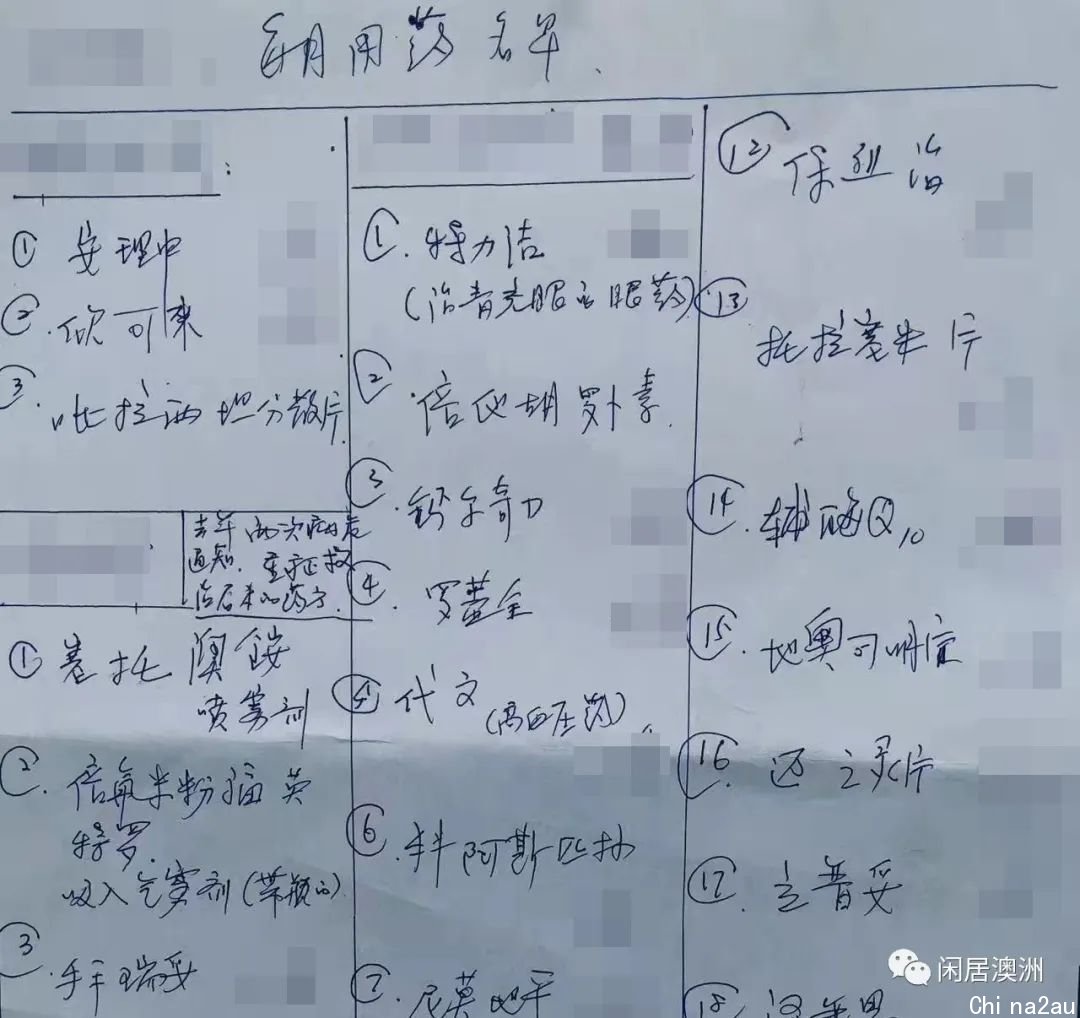 每月用药名单
① 安理申
② 欣可来
③ 吡拉西坦分散片
去年两次病危
通知,重症救
治后来的药方
① 塞托溴铵
喷雾剂
② 倍氯米松福莫
特罗
吸入气雾剂(带瓶的)
③ 瑞妥
① 特力洁
(治青光眼的眼药)
② 倍他胡萝卜素
③ 钙尔奇D
④ 罗盖全
代文(高血压药)
⑥ 拜阿斯匹林
⑦ 尼莫地平
⑫ 保列治
⑬
托拉塞米片
⑭ 辅酶Q10
⑮ 地奥司明片
⑯ 达之灵片
⑰ 立普妥
⑱
闲居澳洲
China2au